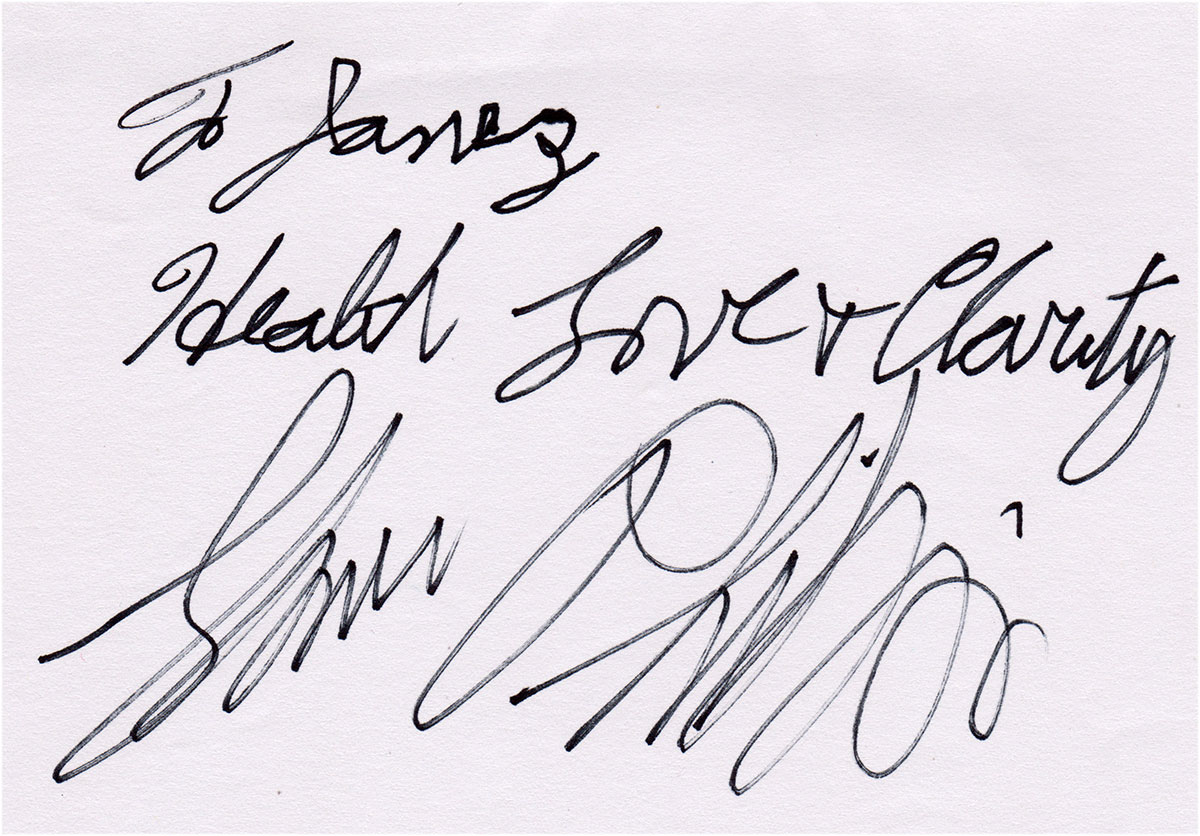 To Janez
Health Love + Clarity